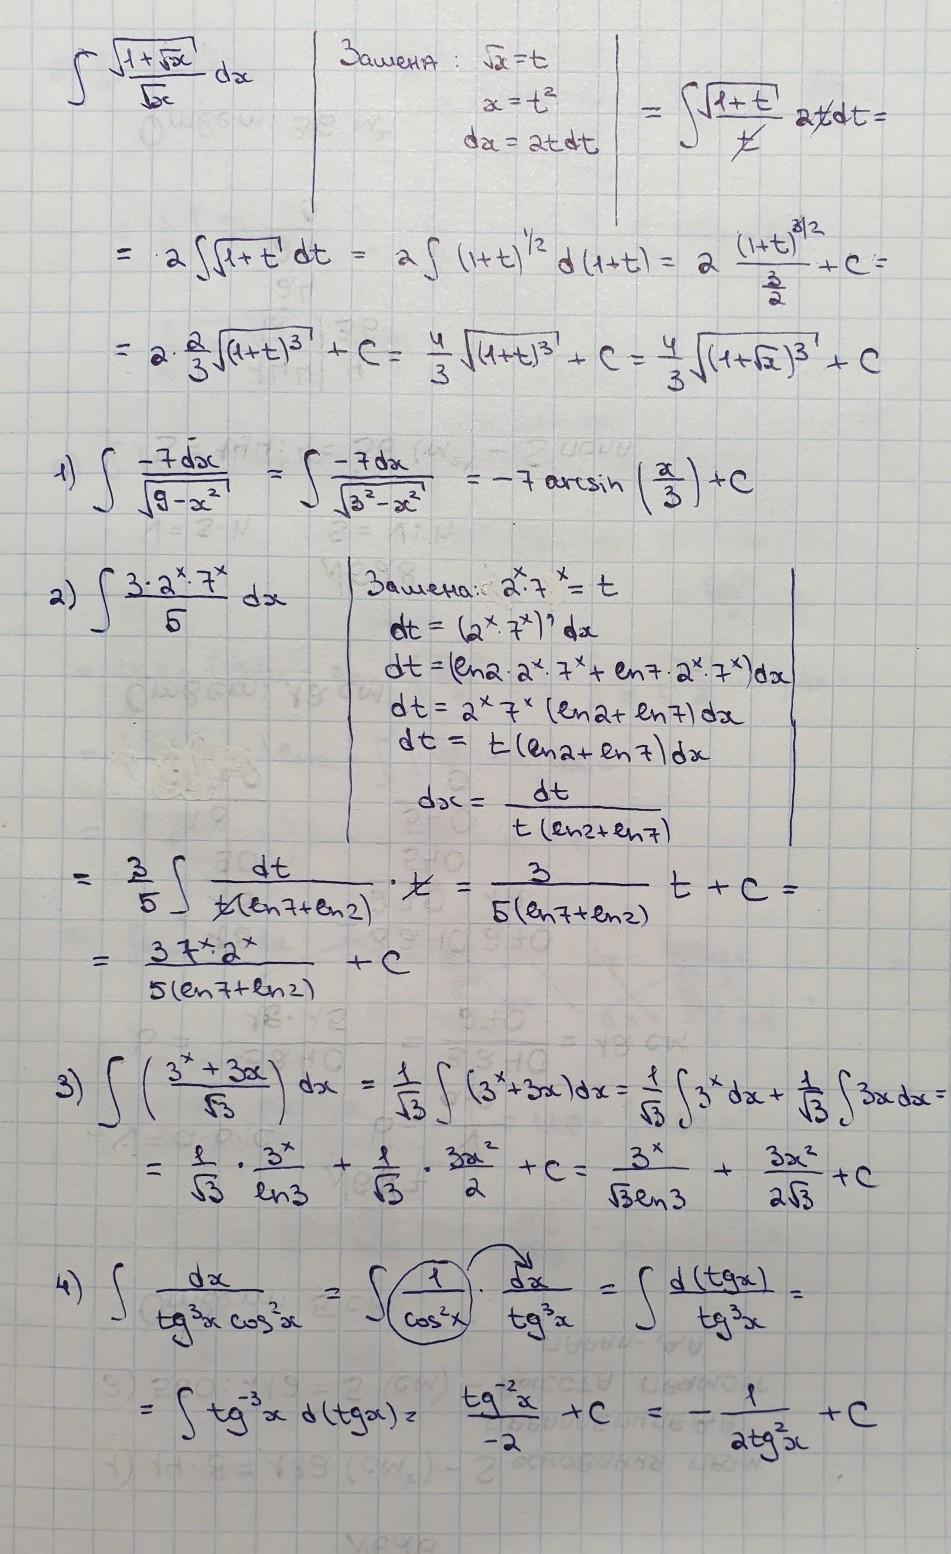 ∫ √(1+√x)/√x dx | Замена: √x = t
x = t²
dx = 2t dt | = ∫ √(1+t)/t 2t dt =
= 2∫√(1+t) dt = 2∫ (1+t)^1/2 d(1+t) = 2 (1+t)^3/2 / (3/2) + C =
= 2·2/3 √((1+t)³) + C = 4/3 √((1+t)³) + C = 4/3 √((1+√x)³) + C
1) ∫ -7dx/√(9-x²) = ∫ -7dx/√(3²-x²) = -7 arcsin (x/3) + C
2) ∫ 3·2^x·7^x/5 dx | Замена: 2^x·7^x = t
dt = (2^x·7^x)' dx
dt = (ln2·2^x·7^x + ln7·2^x·7^x)dx
dt = 2^x 7^x (ln2 + ln7) dx
dt = t (ln2 + ln7) dx
dx = dt/(t(ln2+ln7))
= 3/5 ∫ dt/(t(ln7+ln2)) · t = 3/(5(ln7+ln2)) t + C =
= 3 7^x·2^x/(5(ln7+ln2)) + C
3) ∫ ((3^x + 3x)/√3) dx = 1/√3 ∫ (3^x+3x)dx = 1/√3 ∫3^x dx + 1/√3 ∫3x dx =
= 1/√3 · 3^x/ln3 + 1/√3 · 3x²/2 + C = 3^x/(√3 ln3) + 3x²/(2√3) + C
4) ∫ dx/(tg³x cos²x) = ∫ 1/cos²x · dx/tg³x = ∫ d(tgx)/tg³x =
= ∫ tg^-3 x d(tgx) = tg^-2 x/-2 + C = - 1/(2tg²x) + C